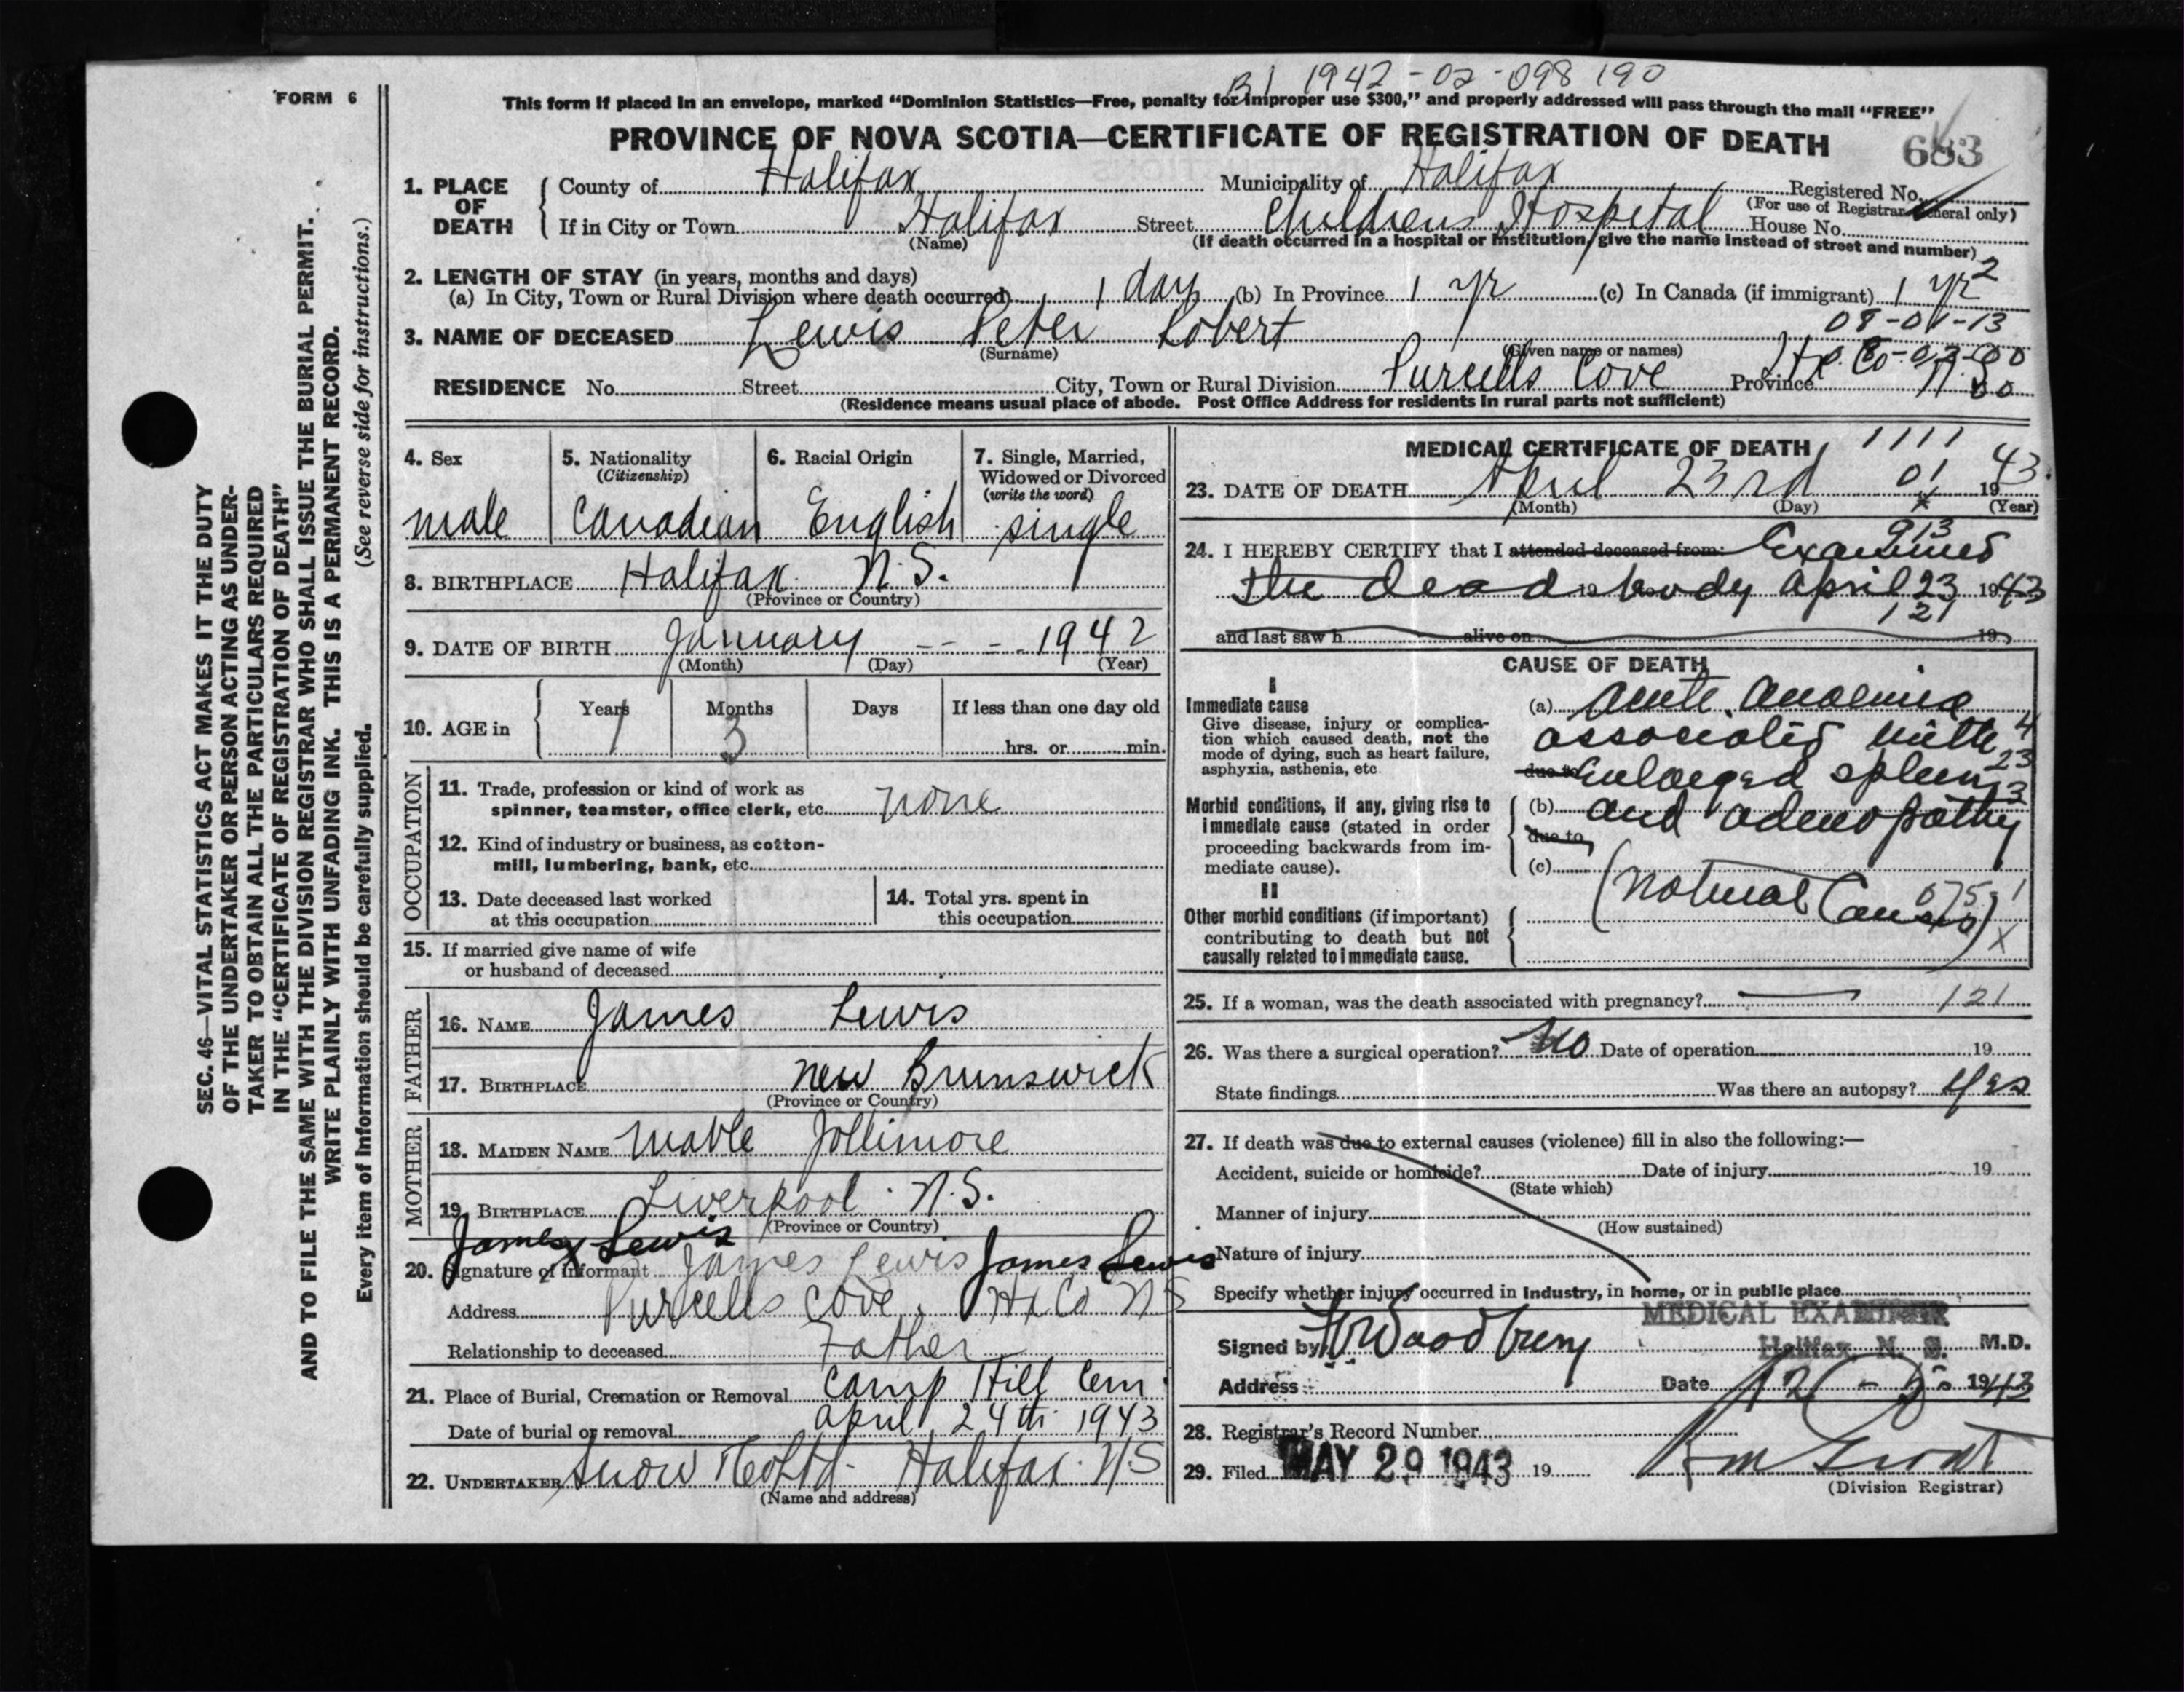 B1 1942-02-098190
FORM 6
This form if placed in an envelope, marked “Dominion Statistics—Free, penalty for improper use $300,” and properly addressed will pass through the mail “FREE”
PROVINCE OF NOVA SCOTIA—CERTIFICATE OF REGISTRATION OF DEATH
683
1. PLACE OF DEATH
County of Halifax Municipality of Halifax Registered No.
(For use of Registrar General only)
If in City or Town Halifax Street Childrens Hospital House No.
(Name) (If death occurred in a hospital or institution, give the name instead of street and number)
2. LENGTH OF STAY (in years, months and days)
(a) In City, Town or Rural Division where death occurred 1 day (b) In Province 1 yr (c) In Canada (if immigrant) 1 yr 2
08-01-13
3. NAME OF DECEASED Lewis Peter Robert
(Surname) (Given name or names)
RESIDENCE No. Street City, Town or Rural Division Purcells Cove Hx. Co Province N.S.
(Residence means usual place of abode. Post Office Address for residents in rural parts not sufficient)
4. Sex
male
5. Nationality
(Citizenship)
Canadian
6. Racial Origin
English
7. Single, Married,
Widowed or Divorced
(write the word)
single
8. BIRTHPLACE Halifax N.S.
(Province or Country)
9. DATE OF BIRTH January - - - 1942
(Month) (Day) (Year)
10. AGE in
Years Months Days If less than one day old
1 3 hrs. or min.
OCCUPATION
11. Trade, profession or kind of work as
spinner, teamster, office clerk, etc. none
12. Kind of industry or business, as cotton-
mill, lumbering, bank, etc.
13. Date deceased last worked
at this occupation
14. Total yrs. spent in
this occupation
15. If married give name of wife
or husband of deceased
FATHER
16. NAME James Lewis
17. BIRTHPLACE New Brunswick
(Province or Country)
MOTHER
18. MAIDEN NAME Mable Jollimore
19. BIRTHPLACE Liverpool N.S.
(Province or Country)
James Lewis
20. Signature of informant James Lewis James Lewis
Address Purcells Cove, Hx Co NS
Relationship to deceased Father
21. Place of Burial, Cremation or Removal Camp Hill Cem.
Date of burial or removal April 24th 1943
22. UNDERTAKER Snow & Co Ltd. Halifax NS
(Name and address)
MEDICAL CERTIFICATE OF DEATH
1111
23. DATE OF DEATH April 23rd 01 1943.
(Month) (Day) (Year)
913
24. I HEREBY CERTIFY that I attended deceased from: Examined
the dead 19 body April 23 1943
121
and last saw h alive on 19
CAUSE OF DEATH
I
Immediate cause
Give disease, injury or complica-
tion which caused death, not the
mode of dying, such as heart failure,
asphyxia, asthenia, etc.
(a) Acute Anaemia
associated with 4
due to enlarged spleen 23
Morbid conditions, if any, giving rise to
immediate cause (stated in order
proceeding backwards from im-
mediate cause).
(b) and adenopathy 3
due to
(c)
(Natural Causes)
075 1
X
II
Other morbid conditions (if important)
contributing to death but not
causally related to immediate cause.
25. If a woman, was the death associated with pregnancy? — 121
26. Was there a surgical operation? No Date of operation 19
State findings Was there an autopsy? Yes
27. If death was due to external causes (violence) fill in also the following:—
Accident, suicide or homicide? Date of injury 19
(State which)
Manner of injury
(How sustained)
Nature of injury
Specify whether injury occurred in industry, in home, or in public place
MEDICAL EXAMINER
Halifax, N. S.
Signed by Woodbury M.D.
Address Date 12 - 5 1943
28. Registrar's Record Number
29. Filed MAY 29 1943 19
(Division Registrar)
SEC. 46—VITAL STATISTICS ACT MAKES IT THE DUTY
OF THE UNDERTAKER OR PERSON ACTING AS UNDER-
TAKER TO OBTAIN ALL THE PARTICULARS REQUIRED
IN THE “CERTIFICATE OF REGISTRATION OF DEATH”
AND TO FILE THE SAME WITH THE DIVISION REGISTRAR WHO SHALL ISSUE THE BURIAL PERMIT.
WRITE PLAINLY WITH UNFADING INK. THIS IS A PERMANENT RECORD.
Every item of information should be carefully supplied. (See reverse side for instructions.)